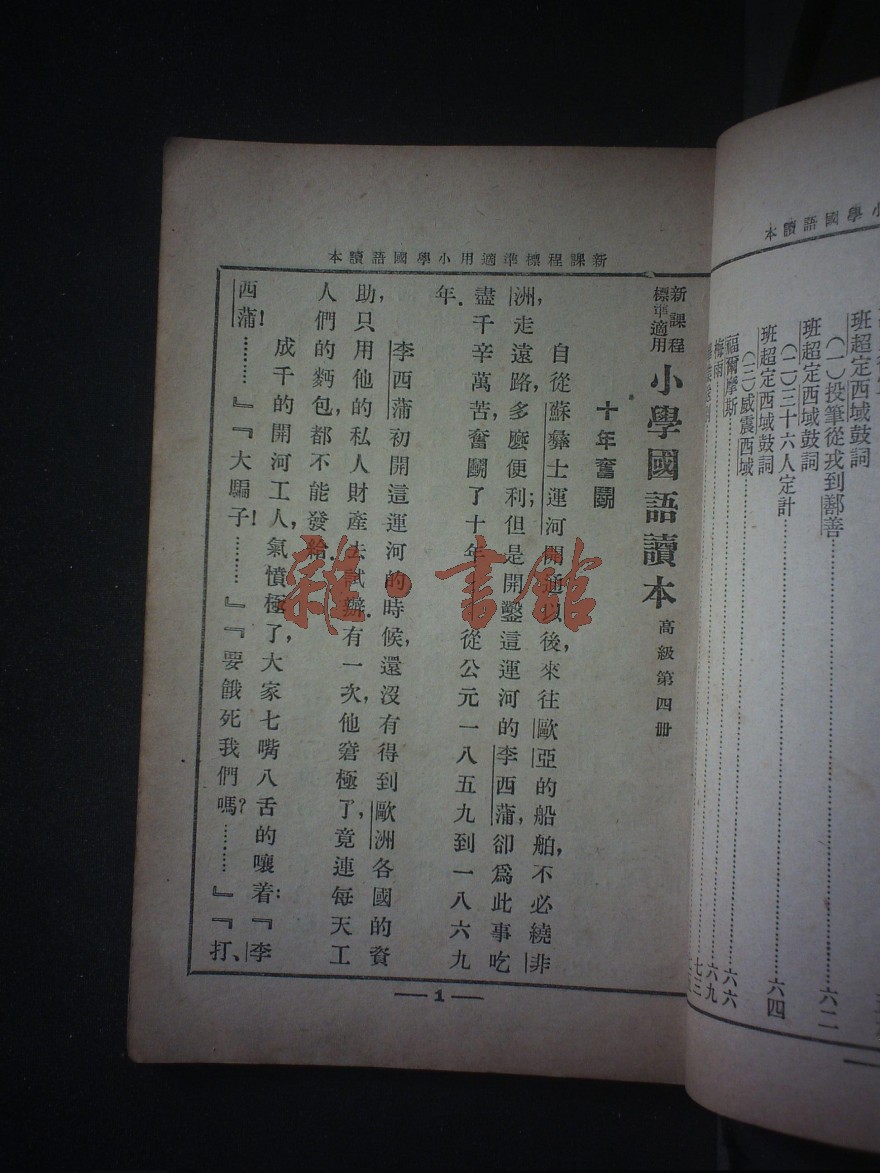 本讀語國學小用適準標程課新
新課程
標準適用
小學國語讀本 高級第四册
十年奮鬭
自從蘇彝士運河開通以後,來往歐亞的船舶,不必繞非
洲,走遠路,多麽便利;但是開鑿這運河的李西蒲,卻爲此事吃
盡千辛萬苦,奮鬭了十年。從公元一八五九到一八六九
年.
李西蒲初開這運河的時候,還沒有得到歐洲各國的資
助,只用他的私人財產去試辦.有一次,他窘極了,竟連每天工
人們的麪包,都不能發給.
成千的開河工人,氣憤極了,大家七嘴八舌的嚷着:『李
西蒲!………』『大騙子!………』『要餓死我們嗎?………』『打、
— 1 —
雜·書館
本讀語國學小
班超定西域鼓詞
(一)投筆從戎到鄯善………六二
班超定西域鼓詞
(二)三十六人定計………六四
班超定西域鼓詞
(三)威震西域………六六
福爾摩斯………六九
梅雨………七三